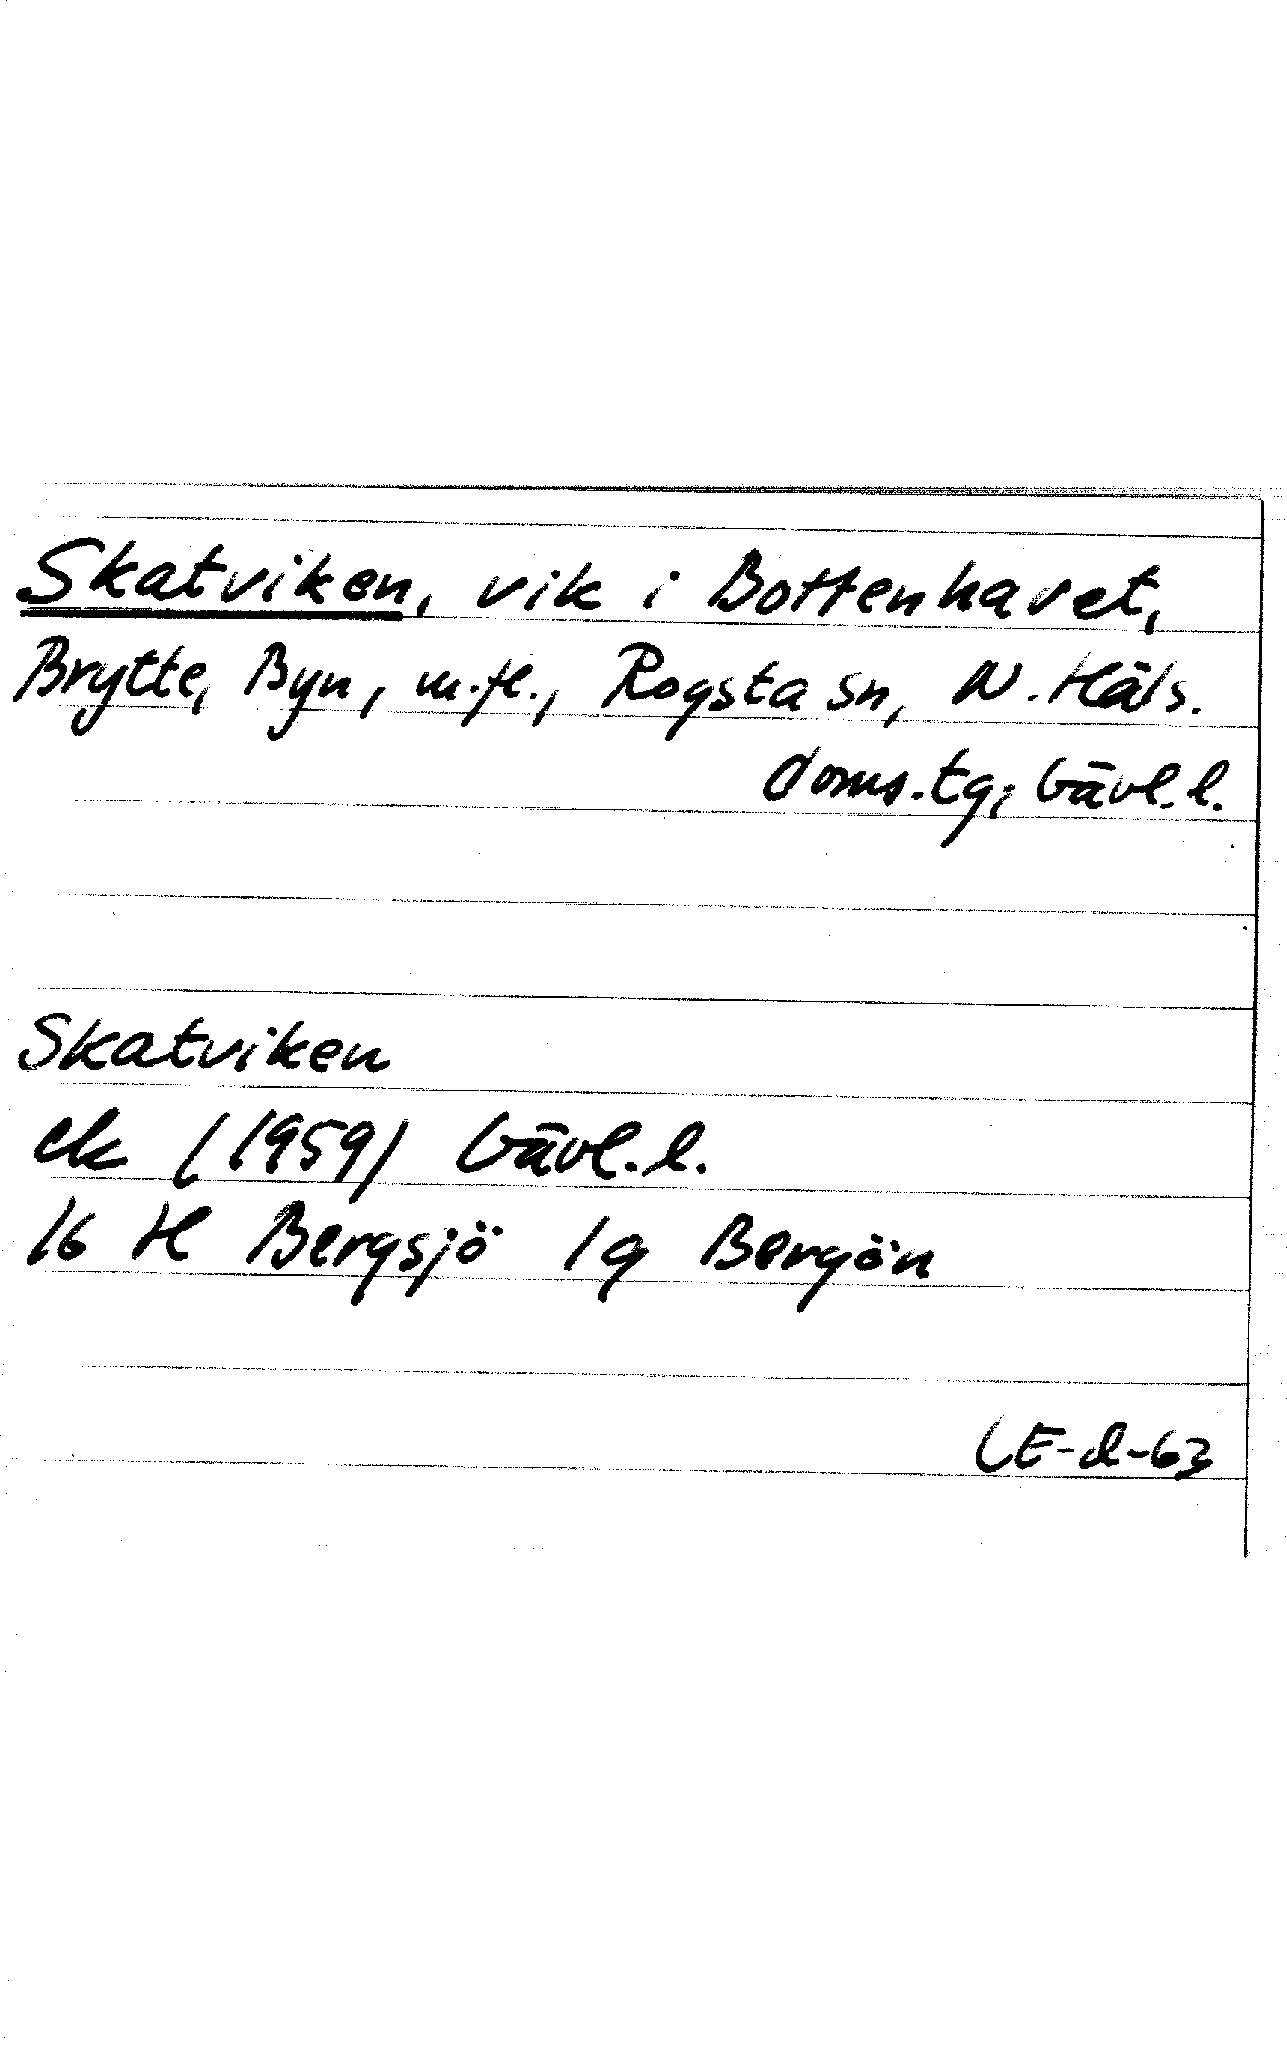 Skatviken, vik i Bottenhavet,
Brytte, Byn, m.fl., Rogsta sn, N. Häls.
doms.tg, Gävl.l.
Skatviken
ek (1959) Gävl.l.
16 H Bergsjö 1g Bergön
GE-d-63